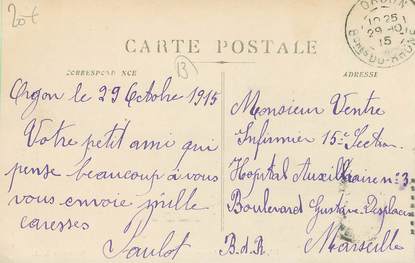 20€
ORGON
10 25
29 - 10
15
B.DU-RHONE
CARTE POSTALE
CORRESPONDANCE
B
ADRESSE
Orgon le 29 Octobre 1915
Votre petit ami qui
pense beaucoup à vous
vous envoie mille
caresses
Paulot
Monsieur Ventre
Infirmier 15e Section
Hopital Auxilliaire n° 3
Boulevard Gustave Desplaces
B.d.R. Marseille